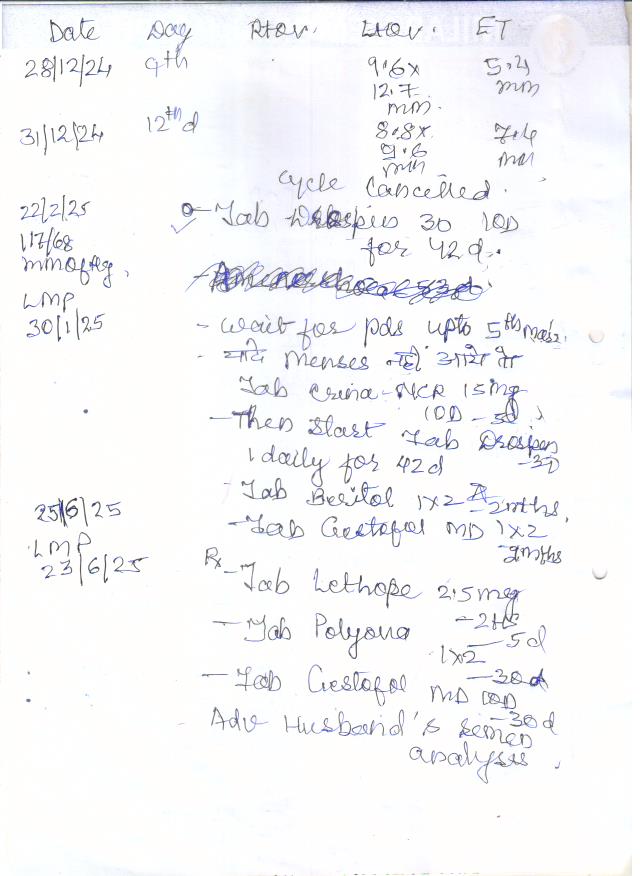 Date Day Rtov. Ltov. ET
28/12/24 9th 9.6x 5.4
12.7 mm
mm.
31/12/24 12th d 8.8x 7.4
9.6 mm
mm
cycle cancelled.
22/2/25 - Tab Drospin 30 1OD
117/68 for 42 d.
mmofHg,
LMP
30/1/25 - wait for pds upto 5th
- यदि menses नही आये तो
Tab Crina-NCR 15mg
1OD - 5d
- Then start Tab Drospin
1 daily for 42d - 30
- Tab Beritol 1x2 - 2mths,
25/6/25 - Tab Gestofol MD 1x2
LMP - 2mths
23/6/25 Rx - Tab Lethope 2.5mg
- 2
- Tab - 5d
1x2
- 30d
- Tab Gestofol MD 1OD
- 30d
Adv Husband's semen
analysis.